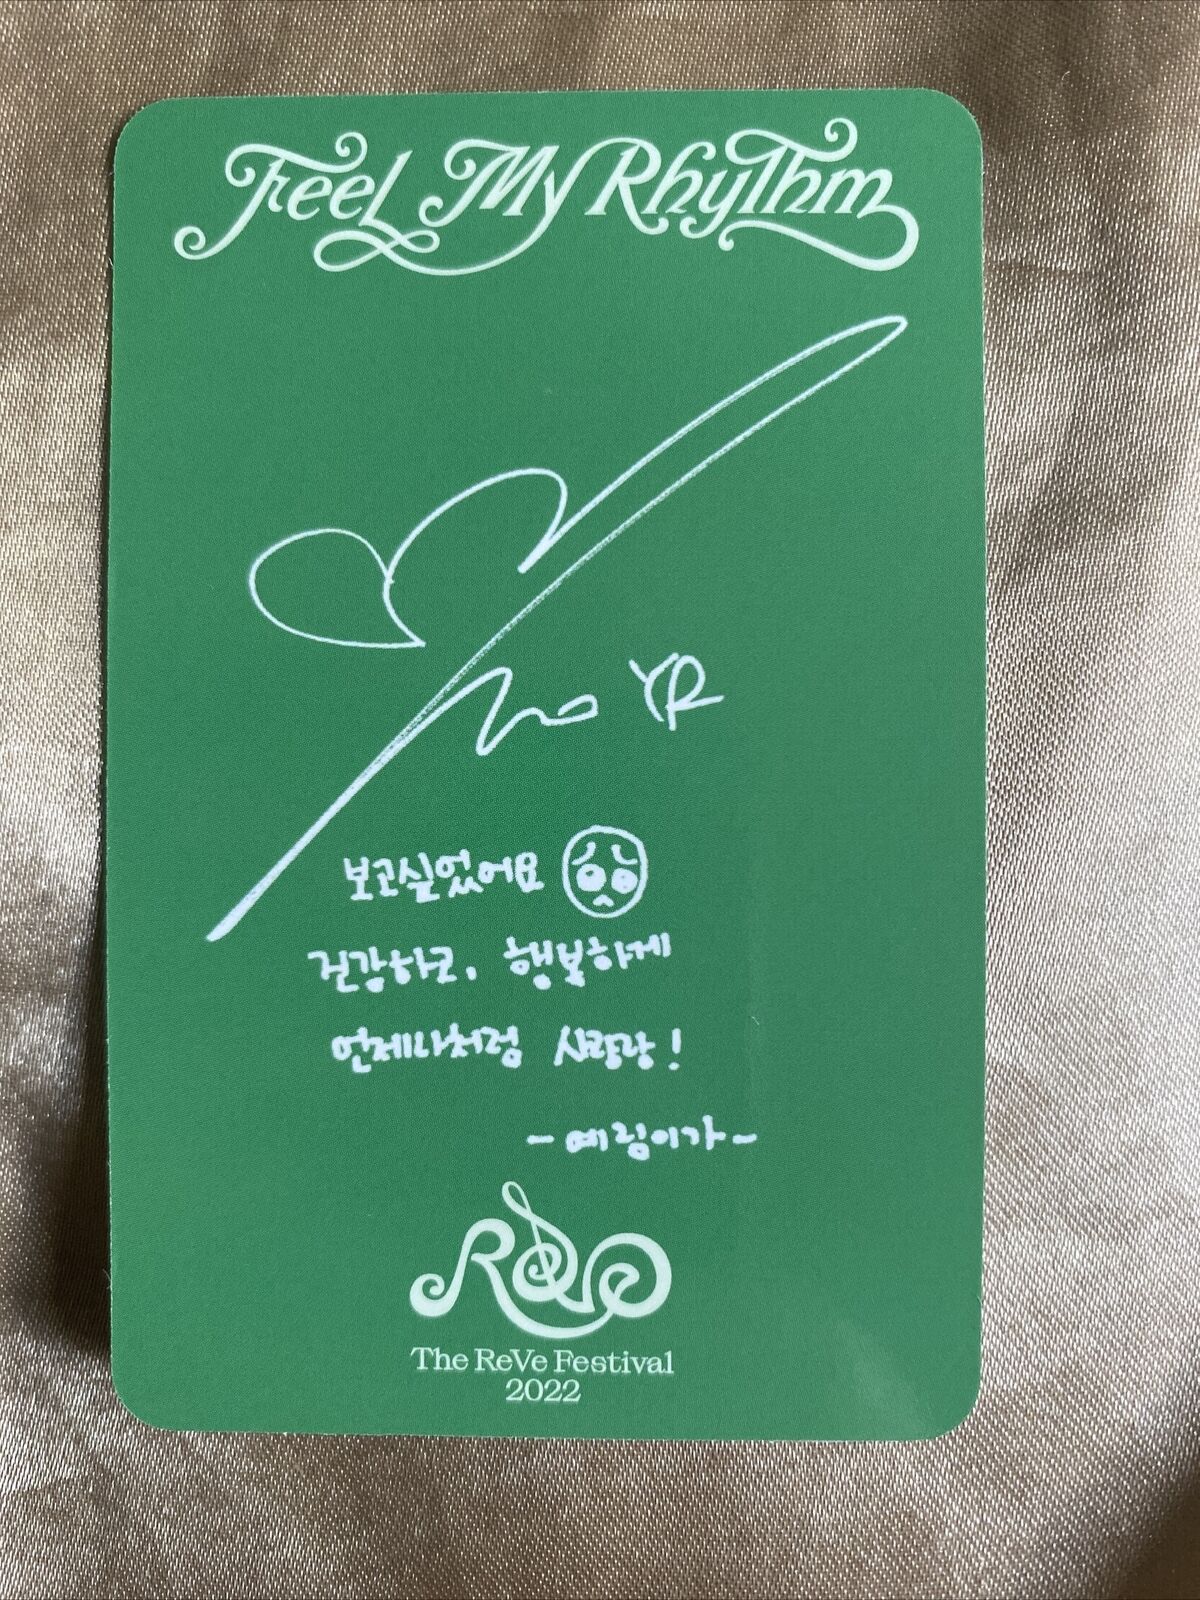 Feel My Rhythm
YR
보고싶었어요
건강하고, 행복하게
언제나처럼 사랑랑!
-예림이가-
ReVe
The ReVe Festival
2022